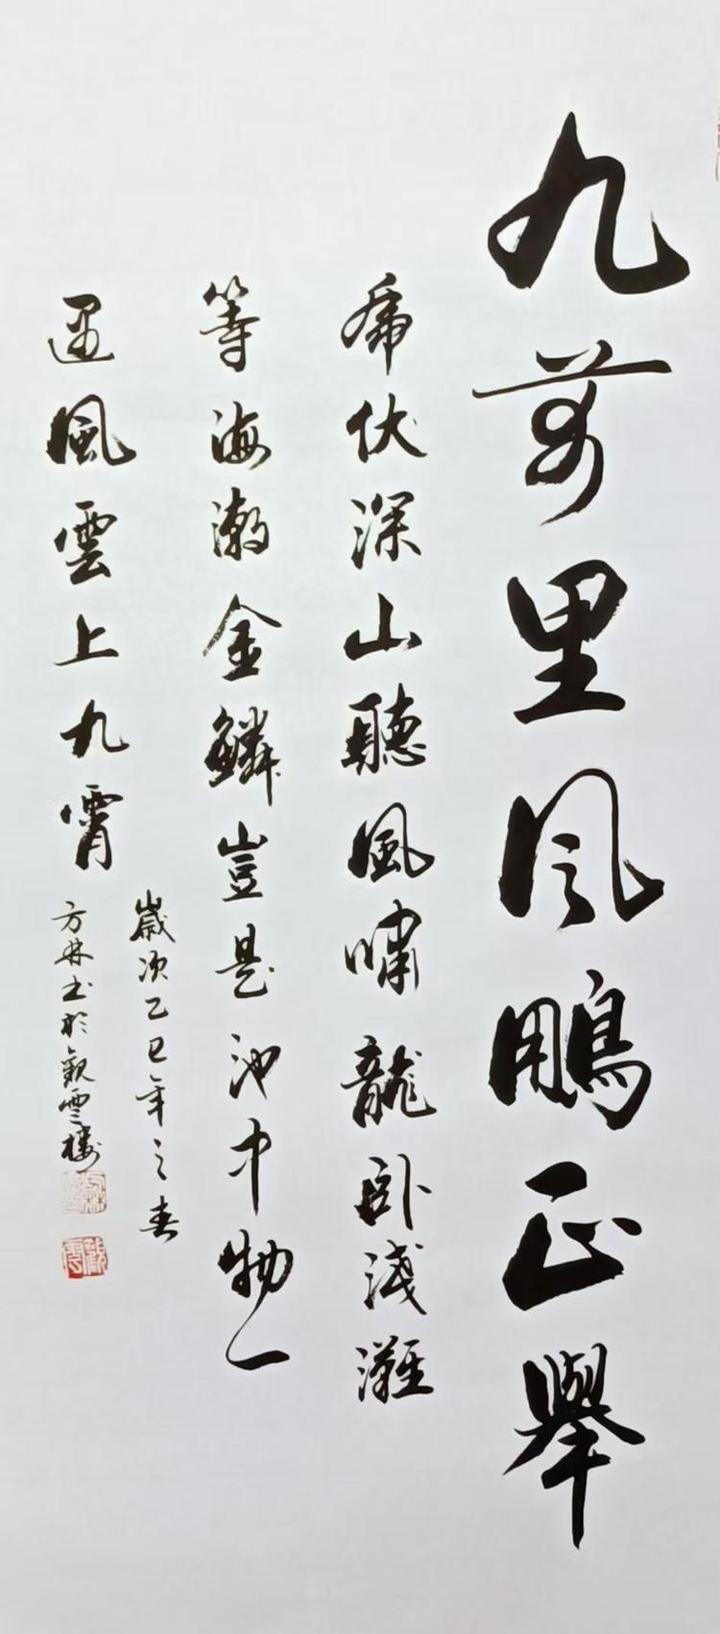 九萬里风鹏正舉
虎伏深山聽風嘯龍卧淺灘
等海潮金鱗豈是池中物一
遇風雲上九霄
歲次乙巳年之春
方林书於觀雲樓
觀雲